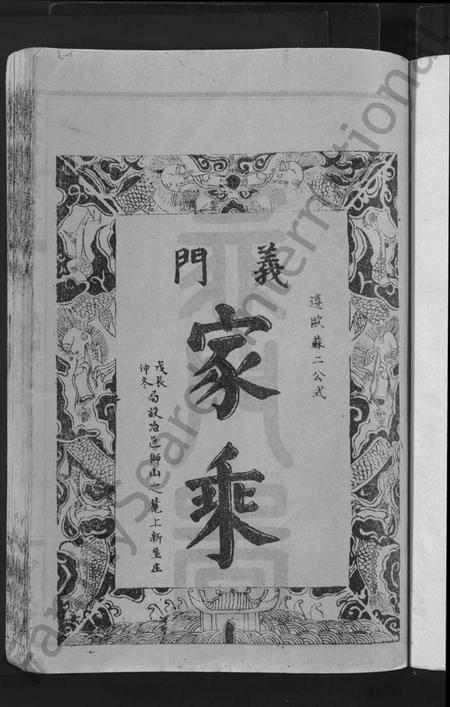 遵歐蘇二公式
義門
家乘
戊辰仲冬
局設治邑獅山之麓上新屋庄